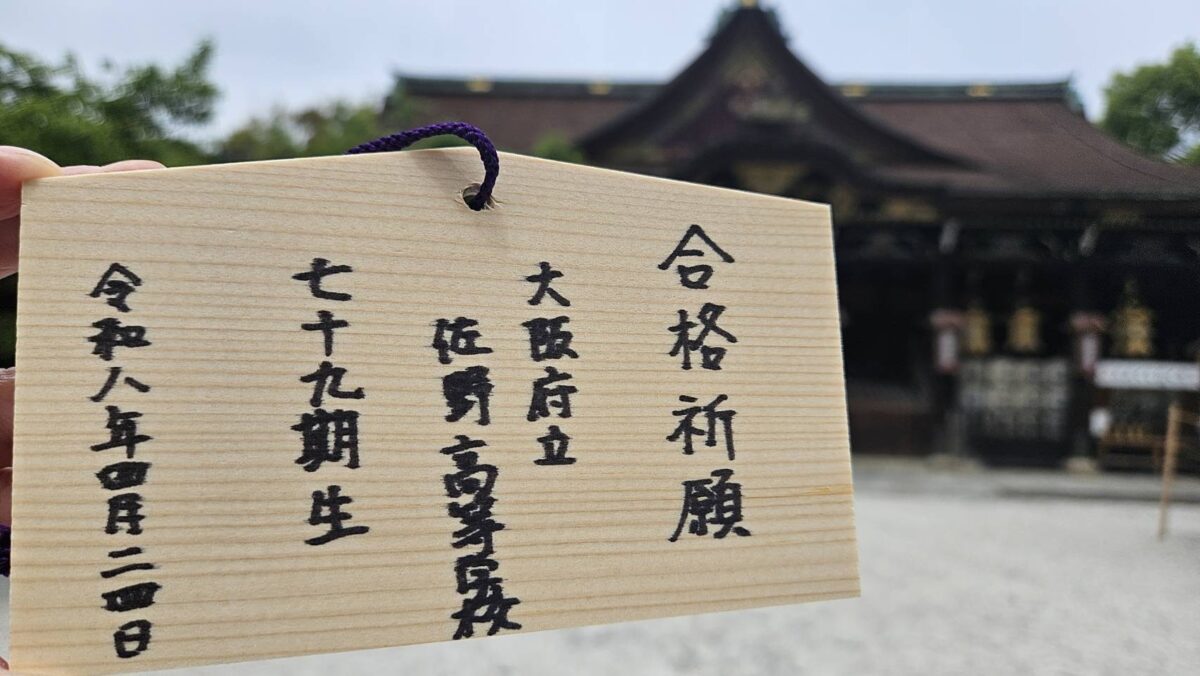 合格祈願
大阪府立
佐野高等学校
七十九期生
令和八年四月二四日